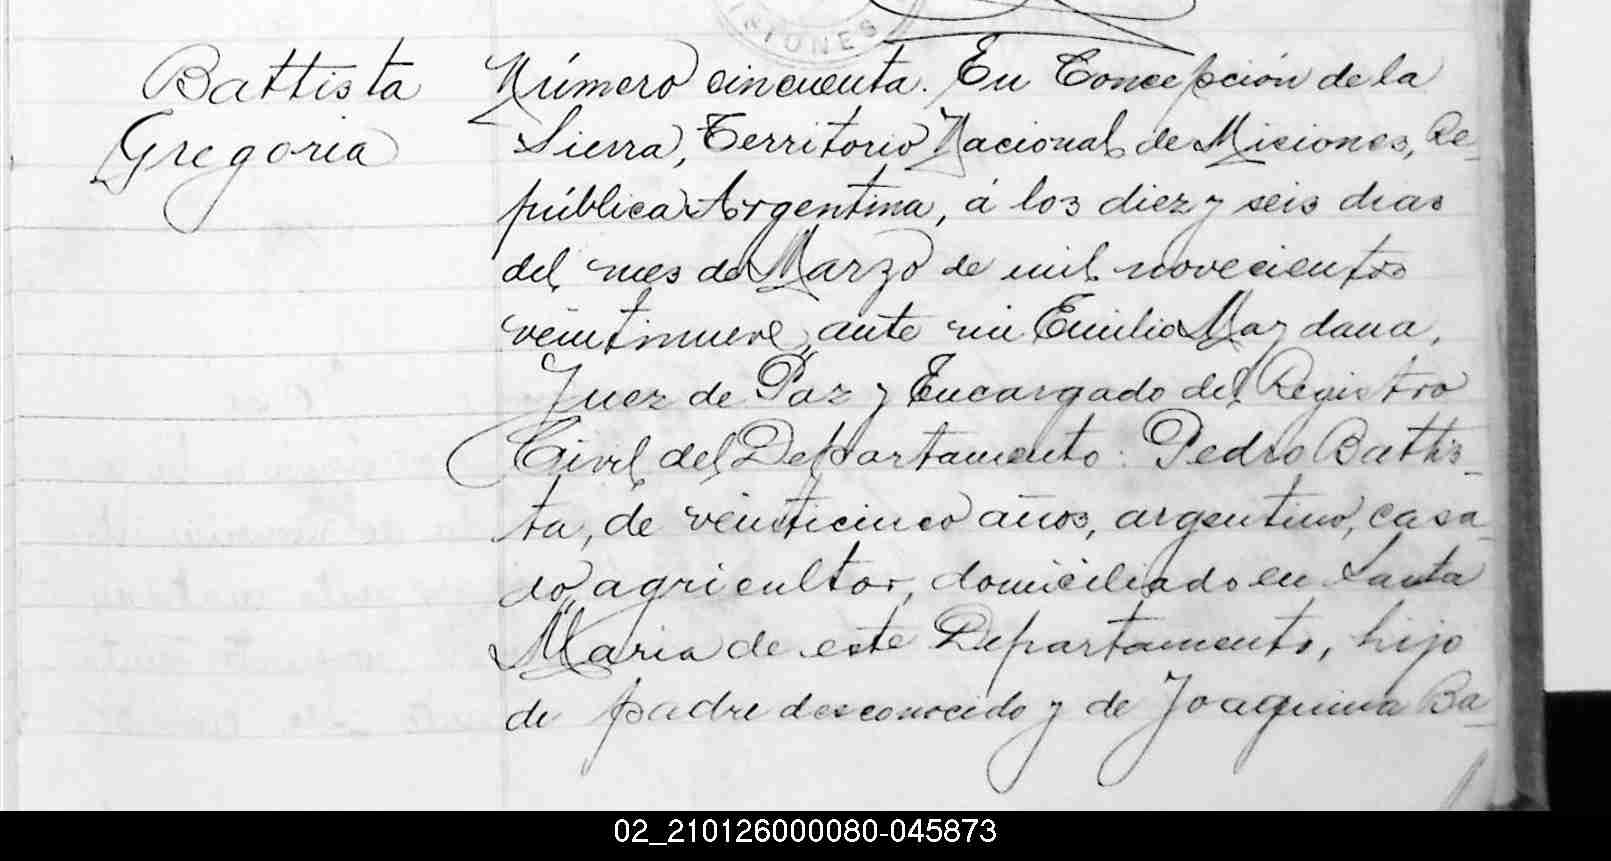 IONES
Battista
Gregoria
Número cincuenta. En Concepción de la
Sierra, Territorio Nacional de Miciones, Re-
pública Argentina, á los diez y seis dias
del mes de Marzo de mil novecientos
veintinueve, ante mi Emilio Maydana,
Juez de Paz y Encargado del Registro
Civil del Departamento: Pedro Battis-
ta, de veinticinco años, argentino, casa-
do, agricultor, domiciliado en Santa
Maria de este Departamento, hijo
de padre desconocido y de Joaquina Ba-
02_210126000080-045873